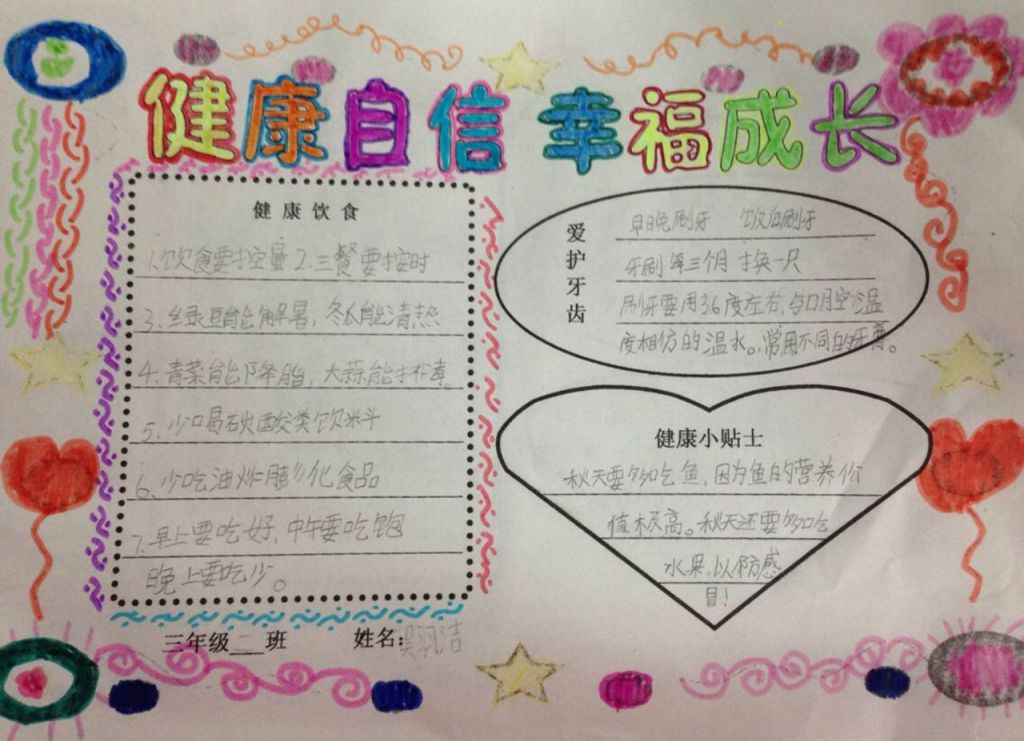 健康自信 幸福成长
健康饮食
1.饮食要控量 2.三餐要按时
3.绿豆能解暑，冬瓜能清热
4.青菜能降脂，大蒜能抗毒。
5.少喝碳酸类饮料
6.少吃油炸膨化食品
7.早上要吃好，中午要吃饱
晚上要吃少。
爱护牙齿
早晚刷牙 饭后刷牙
牙刷每三个月换一只
刷牙要用36度左右，与口腔温
度相仿的温水。常用不同的牙膏。
健康小贴士
秋天要多吃鱼，因为鱼的营养价
值极高。秋天还要多吃
水果，以防感
冒！
三年级二班 姓名：吴